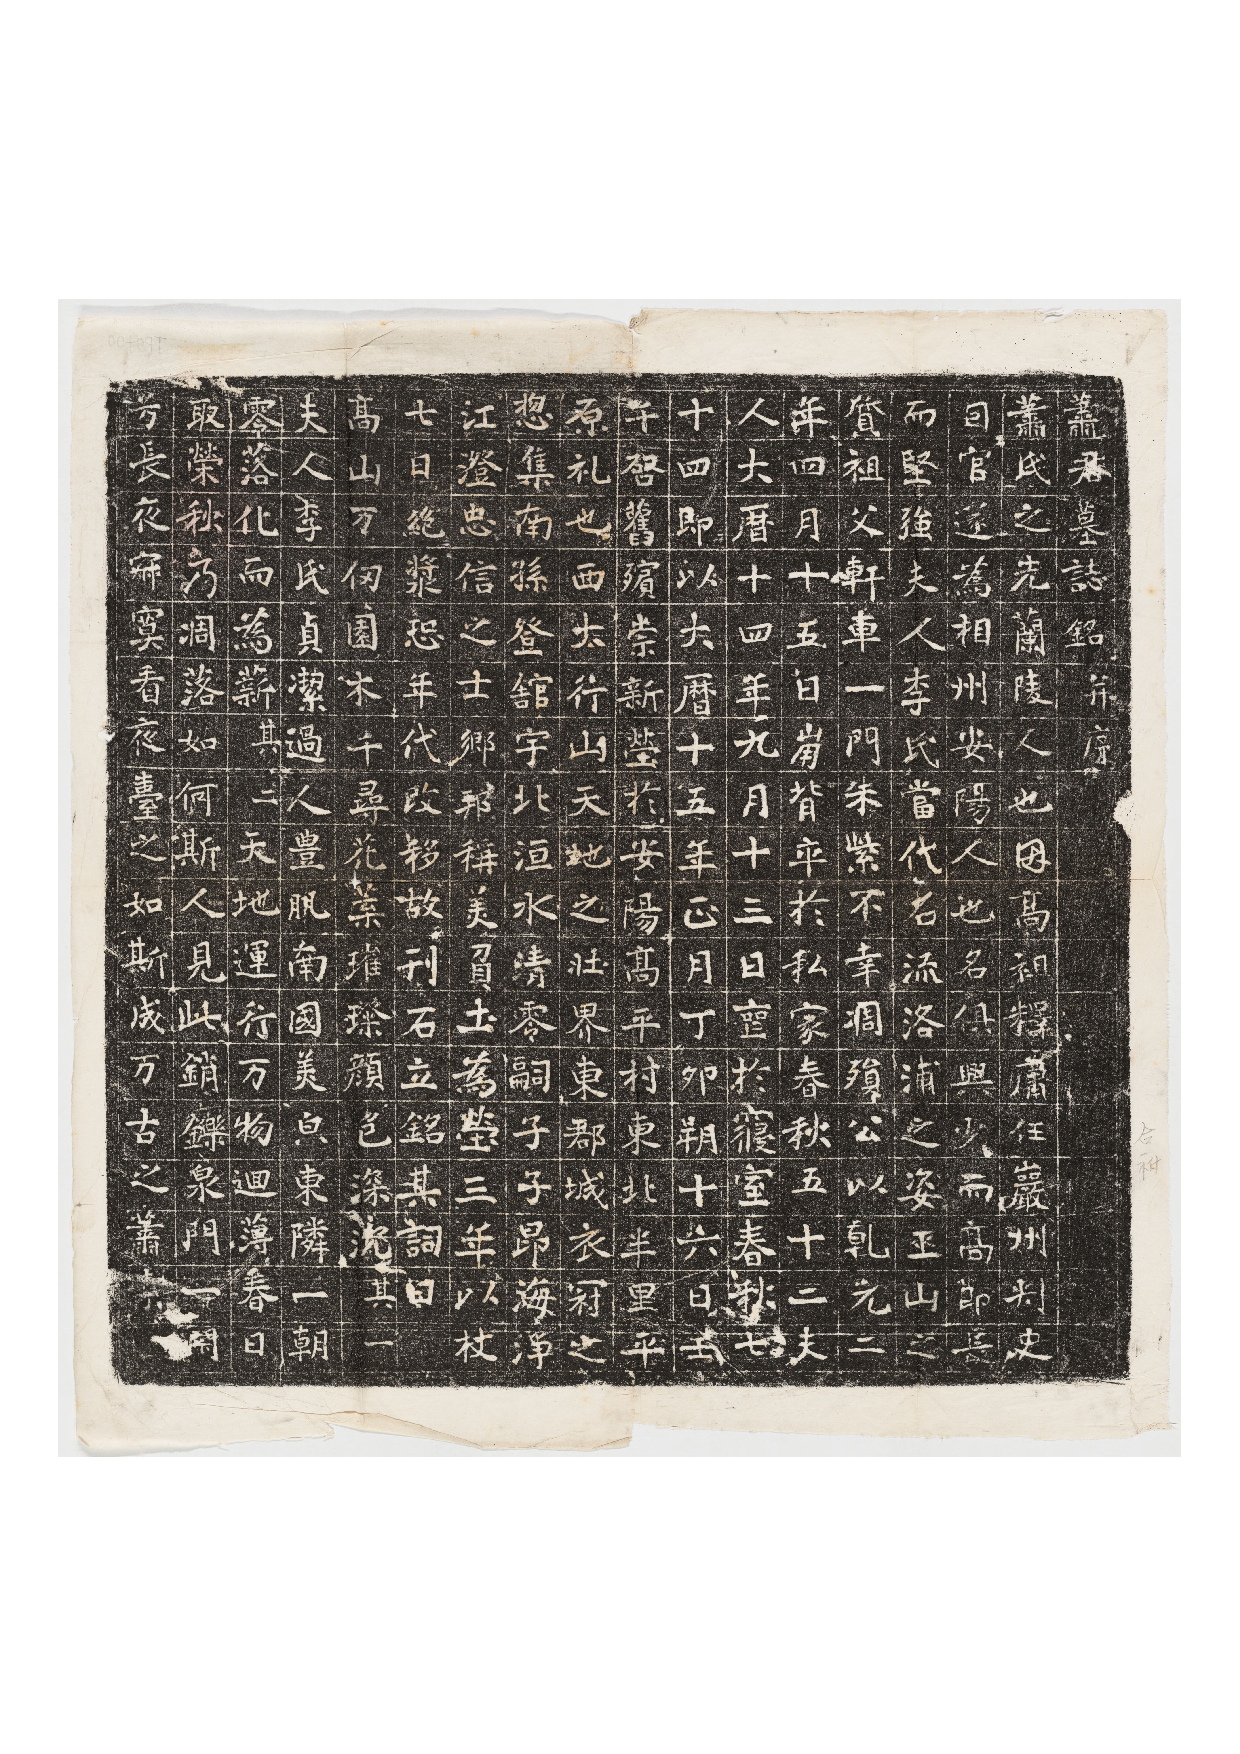 蕭君墓誌銘并序
蕭氏之先蘭陵人也因高祖釋肅任巖州刺史
曰官遂為相州安陽人也名俱興少而高節長
而堅強夫人李氏當代名流洛浦之姿巫山之
質祖父軒車一門朱紫不幸凋殞公以乾元二
年四月十五日崩背卒於私家春秋五十二夫
人大曆十四年九月十三日薨於寢室春秋七
十四即以大曆十五年正月丁卯朔十六日壬
午啓舊殯崇新塋於安陽高平村東北半里平
原礼也西太行山天地之壯界東郡城衣冠之
惣集南孫登舘宇北洹水清零嗣子子昂海淨
江澄忠信之士鄉邦稱美負土為塋三年以杖
七日絕漿恐年代改移故刊石立銘其詞曰
高山万仞園木千尋花蘂璀璨顏色深沉其一
夫人李氏貞潔過人豊肌南國美皃東隣一朝
零落化而為薪其二天地運行万物迴薄春日
取榮秋乃凋落如何斯人見此銷鑠泉門一閇
万長夜寂寞看夜臺之如斯成万古之蕭
合祔